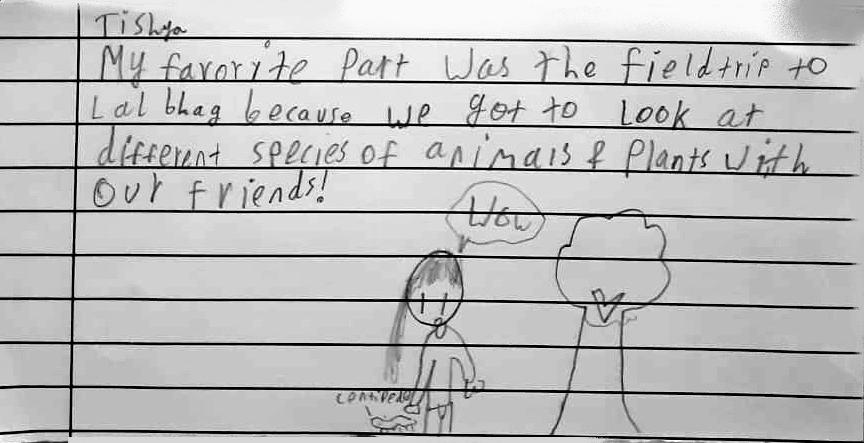 Tishya
My favorite Part was the fieldtrip to
Lal bhag because we got to look at
different species of animals & Plants with
our friends!
Wow